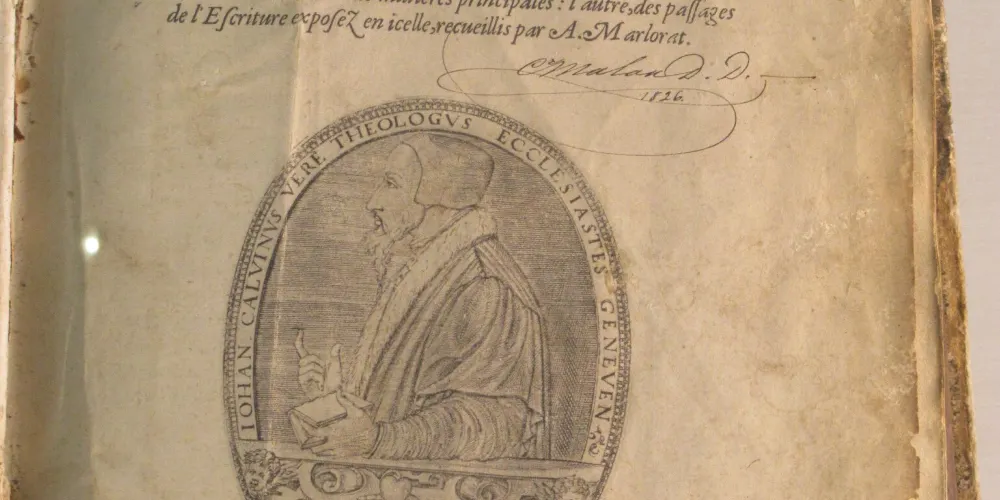 matieres principales : l'autre, des paſſages
de l'Eſcriture expoſeZ en icelle, recueillis par A. Marlorat.
C Malan D. D.
1826.
IOHAN CALVINVS VERE THEOLOGVS ECCLESIASTES GENEVEN